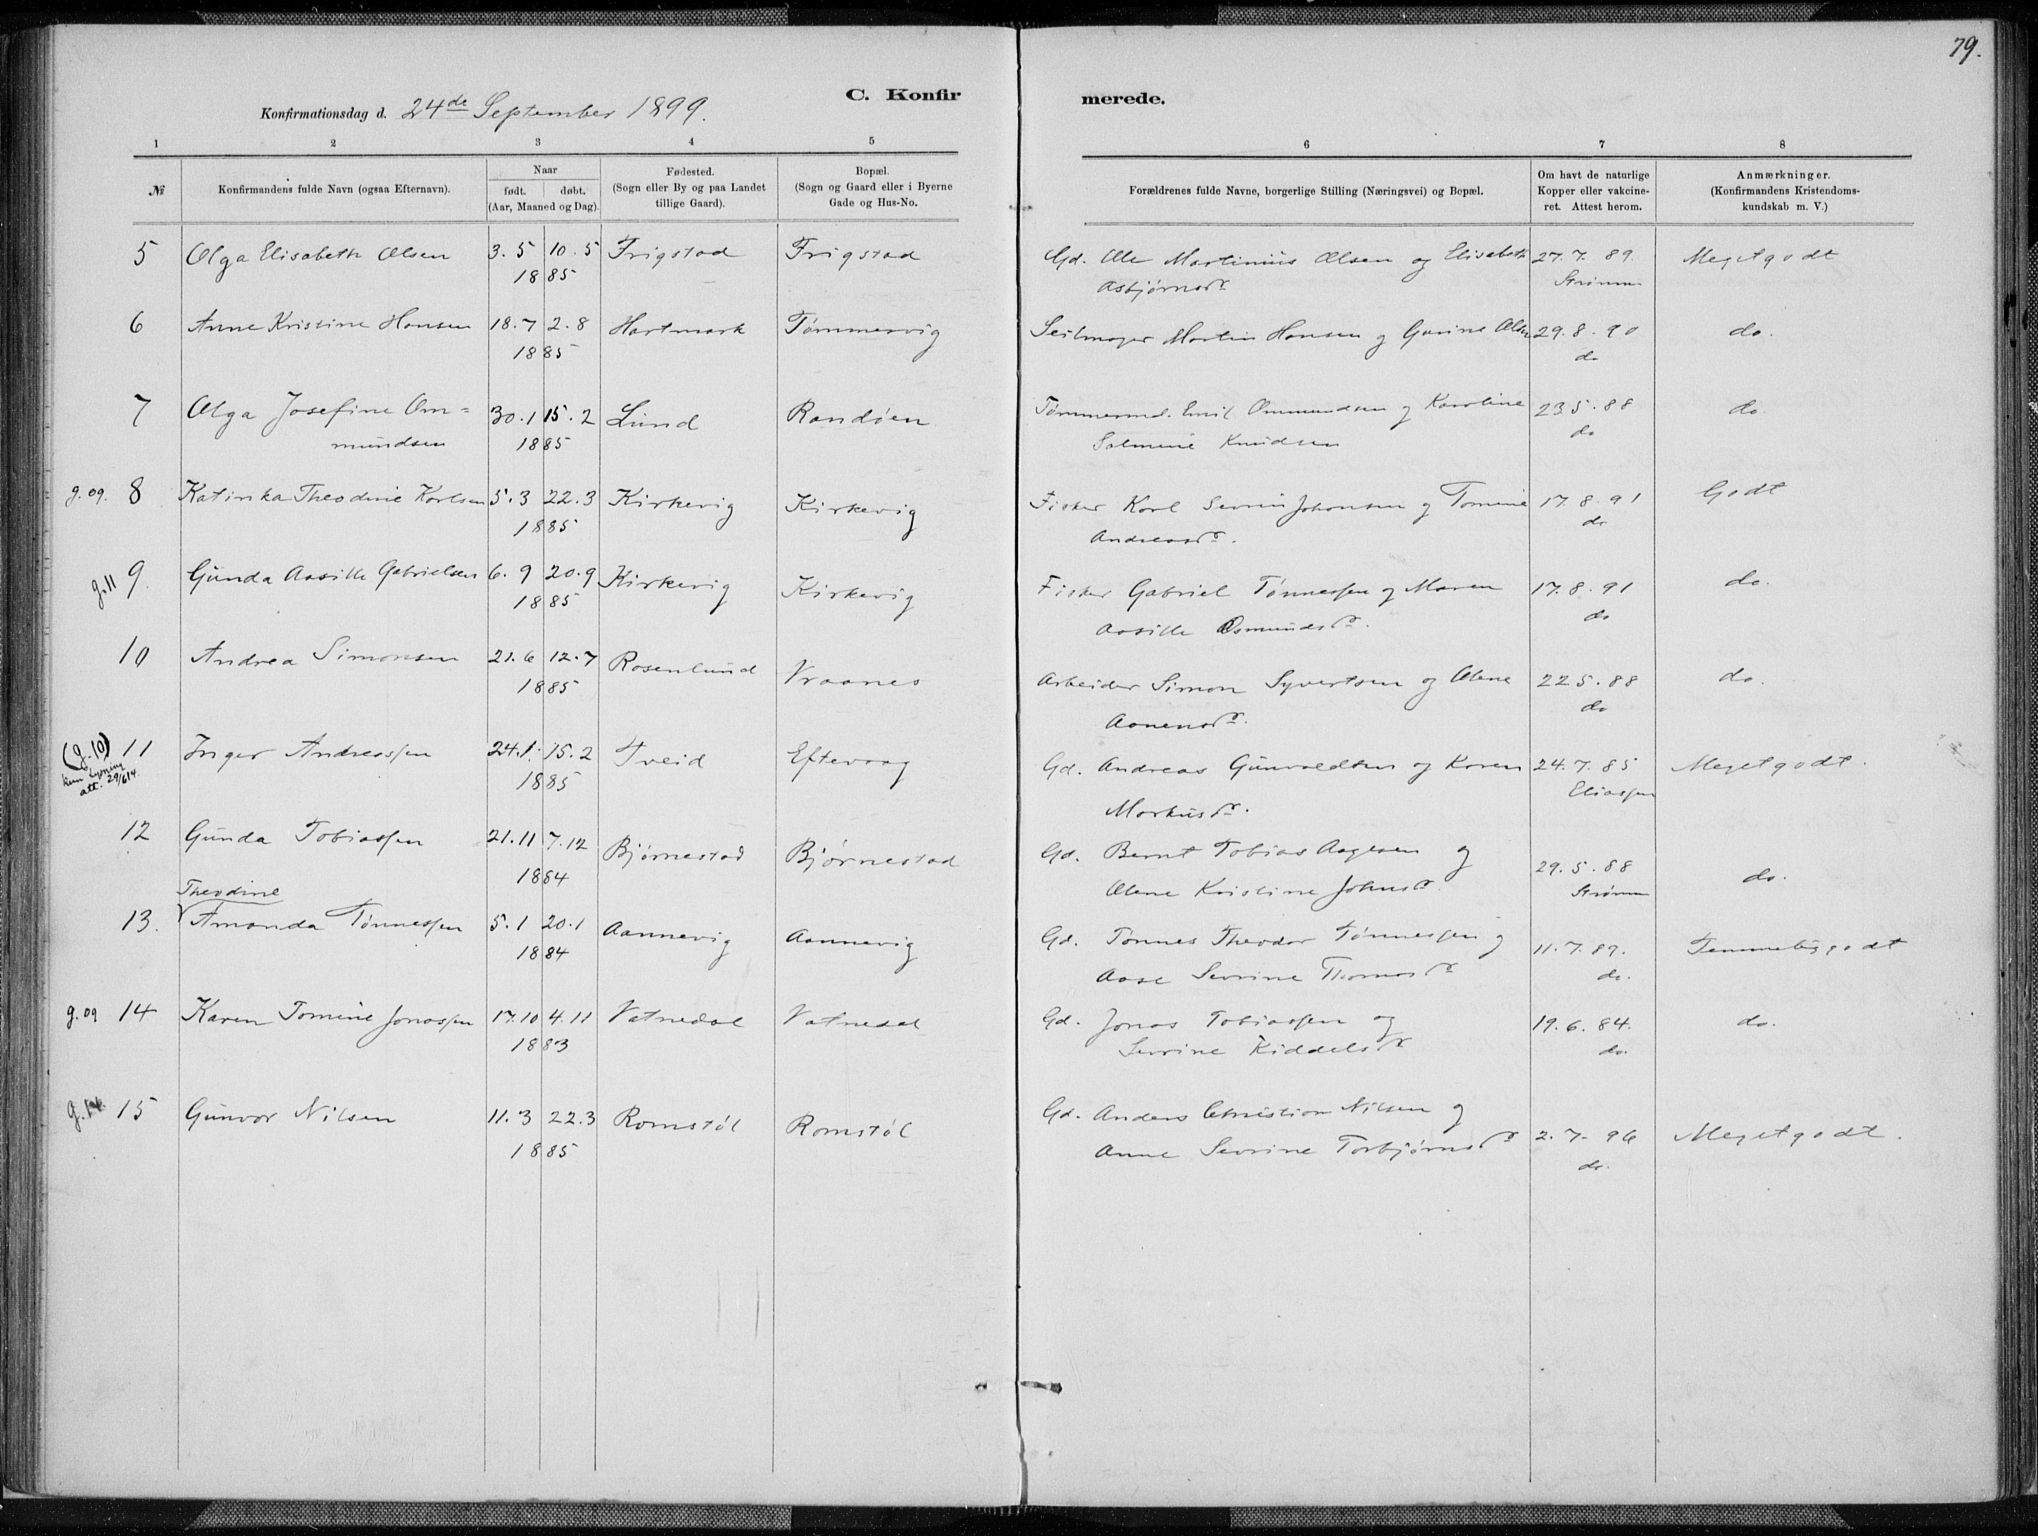 79.
C. Konfirmerede.
Konfirmationsdag d. 24de September 1899.
1 2 3 4 5 6 7 8
№
Konfirmandens fulde Navn (ogsaa Efternavn).
Naar
født. døbt.
(Aar, Maaned og Dag).
Fødested.
(Sogn eller By og paa Landet
tillige Gaard).
Bopæl.
(Sogn og Gaard eller i Byerne
Gade og Hus-No.
Forældrenes fulde Navne, borgerlige Stilling (Næringsvei) og Bopæl.
Om havt de naturlige
Kopper eller vakcine-
ret. Attest herom.
Anmærkninger.
(Konfirmandens Kristendoms-
kundskab m. V.)
5 Olga Elisabeth Olsen 3. 5 10. 5 Frigstad Frigstad Gd. Ole Martinius Olsen og Elisabeth 27. 7. 89. Megetgodt
1885 Asbjørnsdr. Strømm
6 Anne Kristine Hansen 18. 7 2. 8 Hartmark Tømmervig Seilmager Martin Hansen og Gurine Olsen 29. 8. 90 do.
1885 do
7 Olga Josefine Om= 30. 1 15. 2 Lund Randøen Tømmermd. Emil Ommundsen og Karoline 23 5. 88 do.
mundsen 1885 Salmine Knudsen do
g. 09. 8 Katinka Theodine Karlsen 5. 3 22. 3 Kirkevig Kirkevig Fisker Karl Sevrin Johansen og Tomine 17. 8. 91 Godt
1885 Andreasdr. do
g. 11 9. Gunda Aasille Gabrielsen 6. 9 20. 9 Kirkevig Kirkevig Fisker Gabriel Tønnessen og Maren 17. 8. 91 do.
1885 Aasille Osmundsdr. do
10 Andrea Simonsen 21. 6 12. 7 Rosenlund Vraanes Arbeider Simon Syvertsen og Olene 22 5. 88 do.
1885 Aanensdr. do
(g. 10) 11 Inger Andreassen 24. 1. 15. 2 Tveid Eftevaag Gd. Andreas Gunvaldsen og Karen 24. 7. 85 Megetgodt.
kun lysning
att. 29/6 14. 1885 Markusdr. Eliassen
12 Gunda Tobiassen 21. 11 7. 12 Bjørnestad Bjørnestad Gd. Bernt Tobias Aagesen og 29. 5. 88 do.
1884 Olene Kristine Johnsdr. Strømm
Theodine
13. Amanda Tønnessen 5. 1 20. 1 Aannevig Aannevig Gd. Tønnes Theodor Tønnessen og 11. 7. 89. Temmeliggodt
1884 Aase Sevrine Thomasdr. do.
g. 09 14 Karen Tomine Jonassen 17. 10 4. 11 Vatnedal Vatnedal Gd. Jonas Tobiassen og 19. 6. 84. do.
1883 Sevrine Kiddelsdr. do.
g. 14. 15 Gunvor Nilsen 11. 3 22. 3 Romstøl Romstøl Gd. Anders Christian Nilsen og 2. 7. 96 Megetgodt.
1885 Anne Sevrine Torbjørnsdr. do.